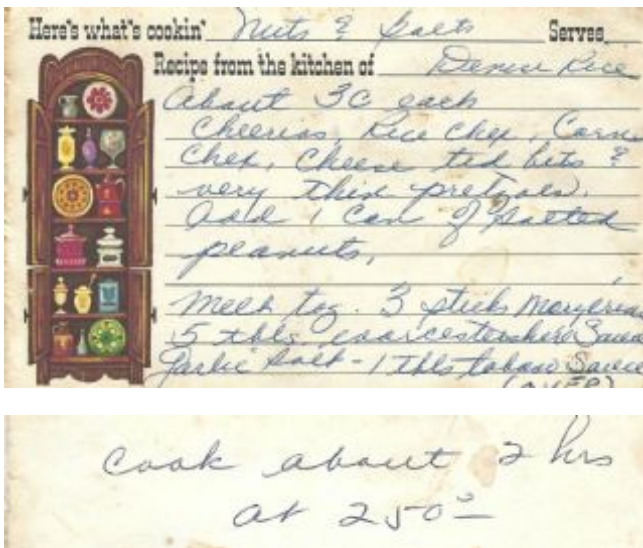 Here's what's cookin' Nuts & Salts Serves
Recipe from the kitchen of Denise Rice
About 3C each
Cheerios, Rice Chex, Corn
Chex, Cheese tid bits &
very thin pretzels.
Add 1 Can of Salted
peanuts,
Melt tog. 3 sticks Margerine
5 tbls worcestershire Sauce
Garlic Salt - 1 tbls tobasco Sauce
(OVER)
Cook about 2 hrs
at 250°